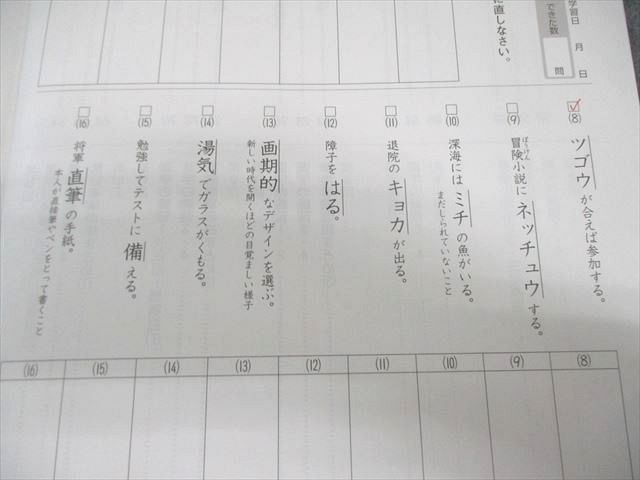 学習日 月 日
できた数 問
に直しなさい。
(8) ツゴウが合えば参加する。
(9) 冒険小説にネッチュウする。
ぼうけん
(10) 深海にはミチの魚がいる。
まだしられていないこと
(11) 退院のキョカが出る。
(12) 障子をはる。
(13) 画期的なデザインを選ぶ。
新しい時代を開くほどの目覚ましい様子
(14) 湯気でガラスがくもる。
(15) 勉強してテストに備える。
(16) 将軍直筆の手紙。
本人が直接筆やペンをとって書くこと
(8)
(9)
(10)
(11)
(12)
(13)
(14)
(15)
(16)